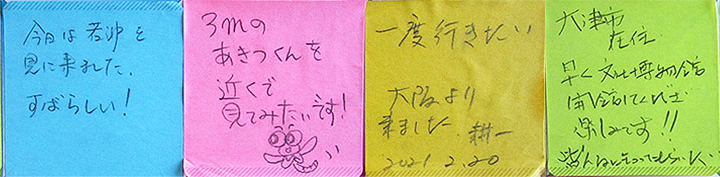 今日は若冲を
見に来ました.
すばらしい!
3mの
あきつくんを
近くで
見てみたいです!
一度行きたい
大阪より
来ました 耕一
2021 2.20
大津市
在住
早く文化博物館
開館してくださ
楽しみです!!